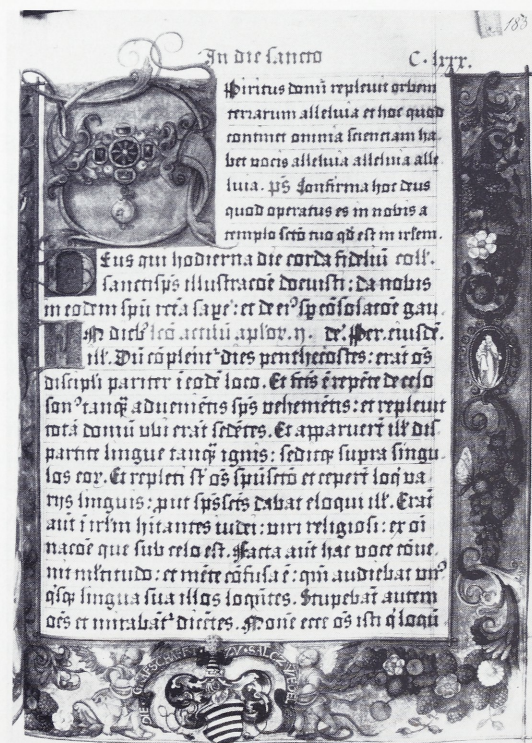 183
In die sancto C. lxxx.
Spiritus domī replevit orbem
terrarum alleluia et hoc quod
continet omnia scienciam ha-
bet vocis alleluia alleluia alle
luia. p̄s Confirma hoc deus
quod operatus es in nobis a
templo sc̄to tuo qd̄ est in irl̄em.
Deus qui hodierna die corda fideliū coll.
sanctisp̄s illustracōe docuisti: da nobis
in eodem sp̄u recta sap̄e: et de eiꝰ sp̄ cōsolacōe gau.
In dieb̄ lcō actuū ap̄lor. ij. de. Per. eiusdē.
ill. Dū cōplent᷑ dies penthecostes: erāt oēs
discipl̄i pariter ī eodē loco. Et fc̄ts ē repēte de celo
sonꝰ tanq̄ᷓ advenientis sp̄s vehemētis: et replevit
totā domū vbi erāt sedētes. Et apparuerūt ill̄ dis
partite lingue tanq̄ᷓ ignis: seditq̄ supra singu
los eor. Et repleti sī oēs sp̄uscto et ceperūt loq̄ va
rijs linguis: put sp̄sscts dabat eloqui ill̄. Erāt
aut ī irl̄m hītantes iudei: viri religiosi: ex oī
nacōe que sub celo est. Facta aūt hac voce cōve.
nit ml̄titudo: et mēte cōfusa ē: qm̄ audiebat vnꝰ
qsq̄ lingua sua illos loquētes. Stupebāt autem
oēs et mirabāt᷑ dicētes. Nōne ecce oēs isti q̄ loqū
DIE GRAFSCHEFT · ZV · SALCZ WEDEL